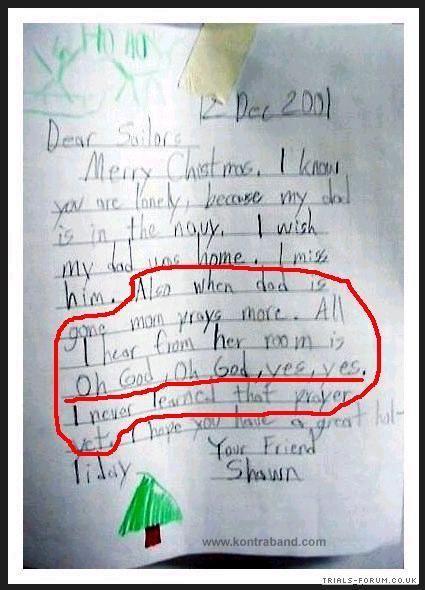 12 Dec 2001
Dear Sailors
Merry Christmas. I know
you are lonely, because my dad
is in the navy. I wish
my dad was home. I miss
him. Also when dad is
gone mom prays more. All
I hear from her room is
Oh God, Oh God, yes, yes.
I never learned that prayer
yet. I hope you have a great hol-
liday
Your Friend
Shawn
www.kontraband.com
TRIALS-FORUM.CO.UK